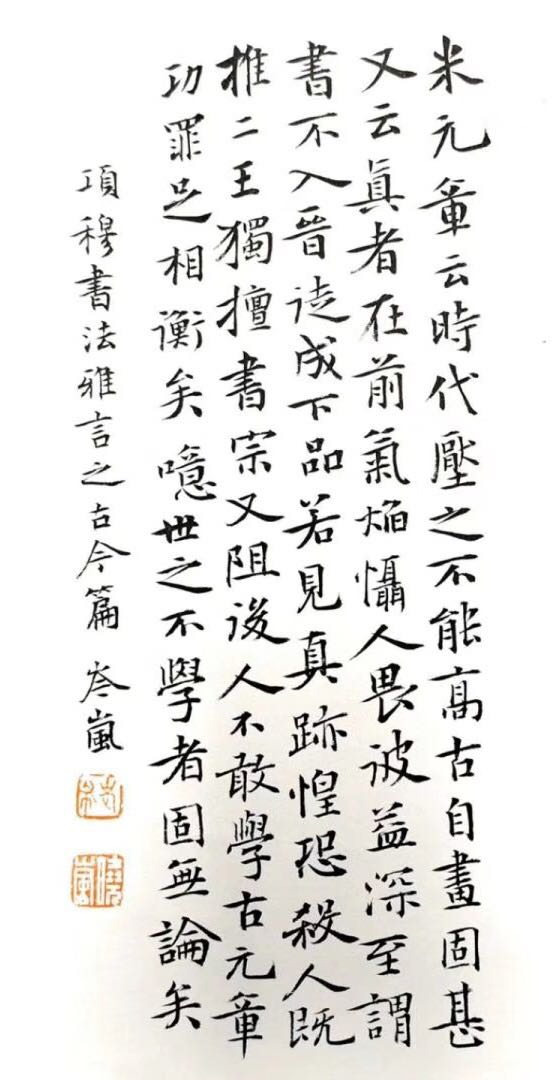 米元章云時代壓之不能高古自畫固甚
又云眞者在前氣焰懾人畏彼益深至謂
書不入晉徒成下品若見真跡惶恐殺人旣
推二王獨擅書宗又阻後人不敢學古元章
功罪足相衡矣噫世之不學者固無論矣
項穆書法雅言之古今篇 岑嵐